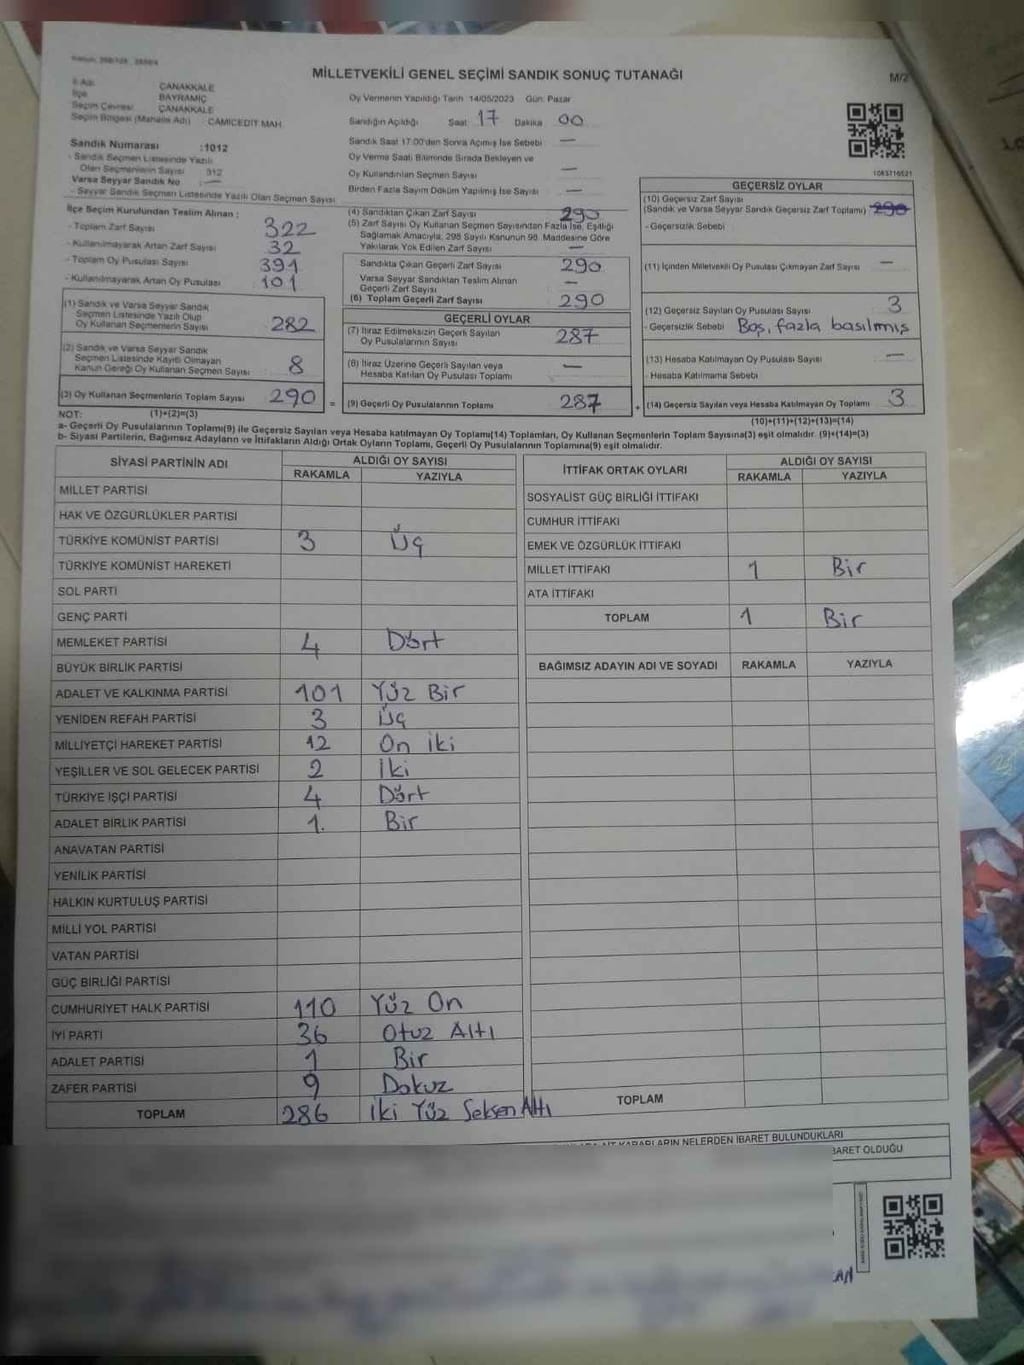 MİLLETVEKİLİ GENEL SEÇİMİ SANDIK SONUÇ TUTANAĞI
M/2
İl Adı ÇANAKKALE
İlçe BAYRAMİÇ
Seçim Çevresi ÇANAKKALE
Seçim Bölgesi (Mahalle Adı) : CAMİCEDİT MAH.
Oy Vermenin Yapıldığı Tarih 14/05/2023 Gün: Pazar
Sandığın Açıldığı Saat 17 Dakika 00
Sandık Numarası :1012
- Sandık Seçmen Listesinde Yazılı
Olan Seçmenlerin Sayısı 312
Varsa Seyyar Sandık No : —
- Seyyar Sandık Seçmen Listesinde Yazılı Olan Seçmen Sayısı
Sandık Saat 17.00'den Sonra Açılmış İse Sebebi —
Oy Verme Saati Bitiminde Sırada Bekleyen ve
Oy Kullandırılan Seçmen Sayısı —
Birden Fazla Sayım Döküm Yapılmış İse Sayısı —
1083716521
İlçe Seçim Kurulundan Teslim Alınan :
- Toplam Zarf Sayısı 322
- Kullanılmayarak Artan Zarf Sayısı 32
- Toplam Oy Pusulası Sayısı 391
- Kullanılmayarak Artan Oy Pusulası 101
(1) Sandık ve Varsa Seyyar Sandık
Seçmen Listesinde Yazılı Olup
Oy Kullanan Seçmenlerin Sayısı 282
(2) Sandık ve Varsa Seyyar Sandık
Seçmen Listesinde Kayıtlı Olmayan
Kanun Gereği Oy Kullanan Seçmen Sayısı 8
(3) Oy Kullanan Seçmenlerin Toplam Sayısı 290 =
(4) Sandıktan Çıkan Zarf Sayısı 290
(5) Zarf Sayısı Oy Kullanan Seçmen Sayısından Fazla İse, Eşitliği
Sağlamak Amacıyla, 298 Sayılı Kanunun 98. Maddesine Göre
Yakılarak Yok Edilen Zarf Sayısı —
Sandıkta Çıkan Geçerli Zarf Sayısı 290
Varsa Seyyar Sandıktan Teslim Alınan
Geçerli Zarf Sayısı —
(6) Toplam Geçerli Zarf Sayısı 290
GEÇERLİ OYLAR
(7) İtiraz Edilmeksizin Geçerli Sayılan
Oy Pusulalarının Sayısı 287
(8) İtiraz Üzerine Geçerli Sayılan veya
Hesaba Katılan Oy Pusulası Toplamı —
(9) Geçerli Oy Pusulalarının Toplamı 287 +
GEÇERSİZ OYLAR
(10) Geçersiz Zarf Sayısı
(Sandık ve Varsa Seyyar Sandık Geçersiz Zarf Toplamı) 290
- Geçersizlik Sebebi
(11) İçinden Milletvekili Oy Pusulası Çıkmayan Zarf Sayısı —
(12) Geçersiz Sayılan Oy Pusulası Sayısı 3
- Geçersizlik Sebebi Boş, fazla basılmış
(13) Hesaba Katılmayan Oy Pusulası Sayısı —
- Hesaba Katılmama Sebebi
(14) Geçersiz Sayılan veya Hesaba Katılmayan Oy Toplamı 3
NOT: (1)+(2)=(3) (10)+(11)+(12)+(13)=(14)
a- Geçerli Oy Pusulalarının Toplamı(9) ile Geçersiz Sayılan veya Hesaba katılmayan Oy Toplamı(14) Toplamları, Oy Kullanan Seçmenlerin Toplam Sayısına(3) eşit olmalıdır. (9)+(14)=(3)
b- Siyasi Partilerin, Bağımsız Adayların ve İttifakların Aldığı Ortak Oyların Toplamı, Geçerli Oy Pusulalarının Toplamına(9) eşit olmalıdır.
SİYASİ PARTİNİN ADI ALDIĞI OY SAYISI
RAKAMLA YAZIYLA
MİLLET PARTİSİ
HAK VE ÖZGÜRLÜKLER PARTİSİ
TÜRKİYE KOMÜNİST PARTİSİ 3 Üç
TÜRKİYE KOMÜNİST HAREKETİ
SOL PARTİ
GENÇ PARTİ
MEMLEKET PARTİSİ 4 Dört
BÜYÜK BİRLİK PARTİSİ
ADALET VE KALKINMA PARTİSİ 101 Yüz Bir
YENİDEN REFAH PARTİSİ 3 Üç
MİLLİYETÇİ HAREKET PARTİSİ 12 On iki
YEŞİLLER VE SOL GELECEK PARTİSİ 2 İki
TÜRKİYE İŞÇİ PARTİSİ 4 Dört
ADALET BİRLİK PARTİSİ 1. Bir
ANAVATAN PARTİSİ
YENİLİK PARTİSİ
HALKIN KURTULUŞ PARTİSİ
MİLLİ YOL PARTİSİ
VATAN PARTİSİ
GÜÇ BİRLİĞİ PARTİSİ
CUMHURİYET HALK PARTİSİ 110 Yüz On
İYİ PARTİ 36 Otuz Altı
ADALET PARTİSİ 1 Bir
ZAFER PARTİSİ 9 Dokuz
TOPLAM 286 İki Yüz Seksen Altı
İTTİFAK ORTAK OYLARI ALDIĞI OY SAYISI
RAKAMLA YAZIYLA
SOSYALİST GÜÇ BİRLİĞİ İTTİFAKI
CUMHUR İTTİFAKI
EMEK VE ÖZGÜRLÜK İTTİFAKI
MİLLET İTTİFAKI 1 Bir
ATA İTTİFAKI
TOPLAM 1 Bir
BAĞIMSIZ ADAYIN ADI VE SOYADI RAKAMLA YAZIYLA
TOPLAM
KARARLARIN NELERDEN İBARET BULUNDUKLARI
İBARET OLDUĞU